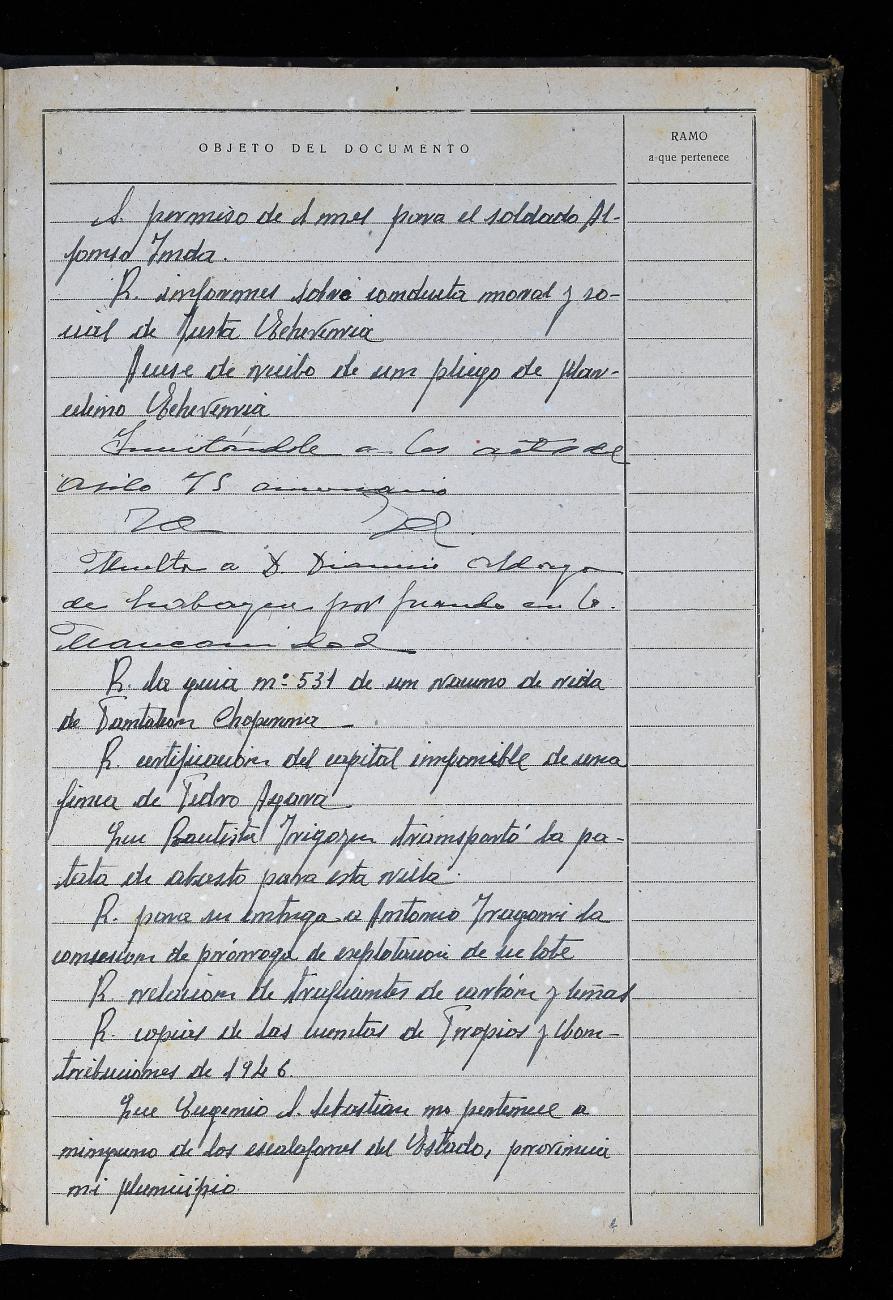 OBJETO DEL DOCUMENTO
RAMO
a que pertenece
S. permiso de 1 mes para el soldado Al-
fonso Inda.
R. informes sobre conducta moral y so-
cial de Justa Echeverria
Acuse de recibo de un pliego de Mar-
celino Echeverria
Invitándole a los actos del
asilo 75 aniversario
Multa a D Dionisio
de por en la
Mancomunidad
R. la guia nº 531 de un vacuno de vida
de Pantaleon Choperena
R. certificacion del capital imponible de una
finca de Pedro Ayara
Que Bautista Irigoyen transportó la pa-
tata de abasto para esta villa.
R. para su entrega a Antonio Iragorri la
consesion de prórroga de explotacion de su lote
R. relacion de traficantes de carbón y leñas
R. copias de las cuentas de Propios y Con-
tribuciones de 1946.
Que Eugenio S. Sebastian no pertenece a
ninguno de los escalafones del Estado, provincia
ni Municipio